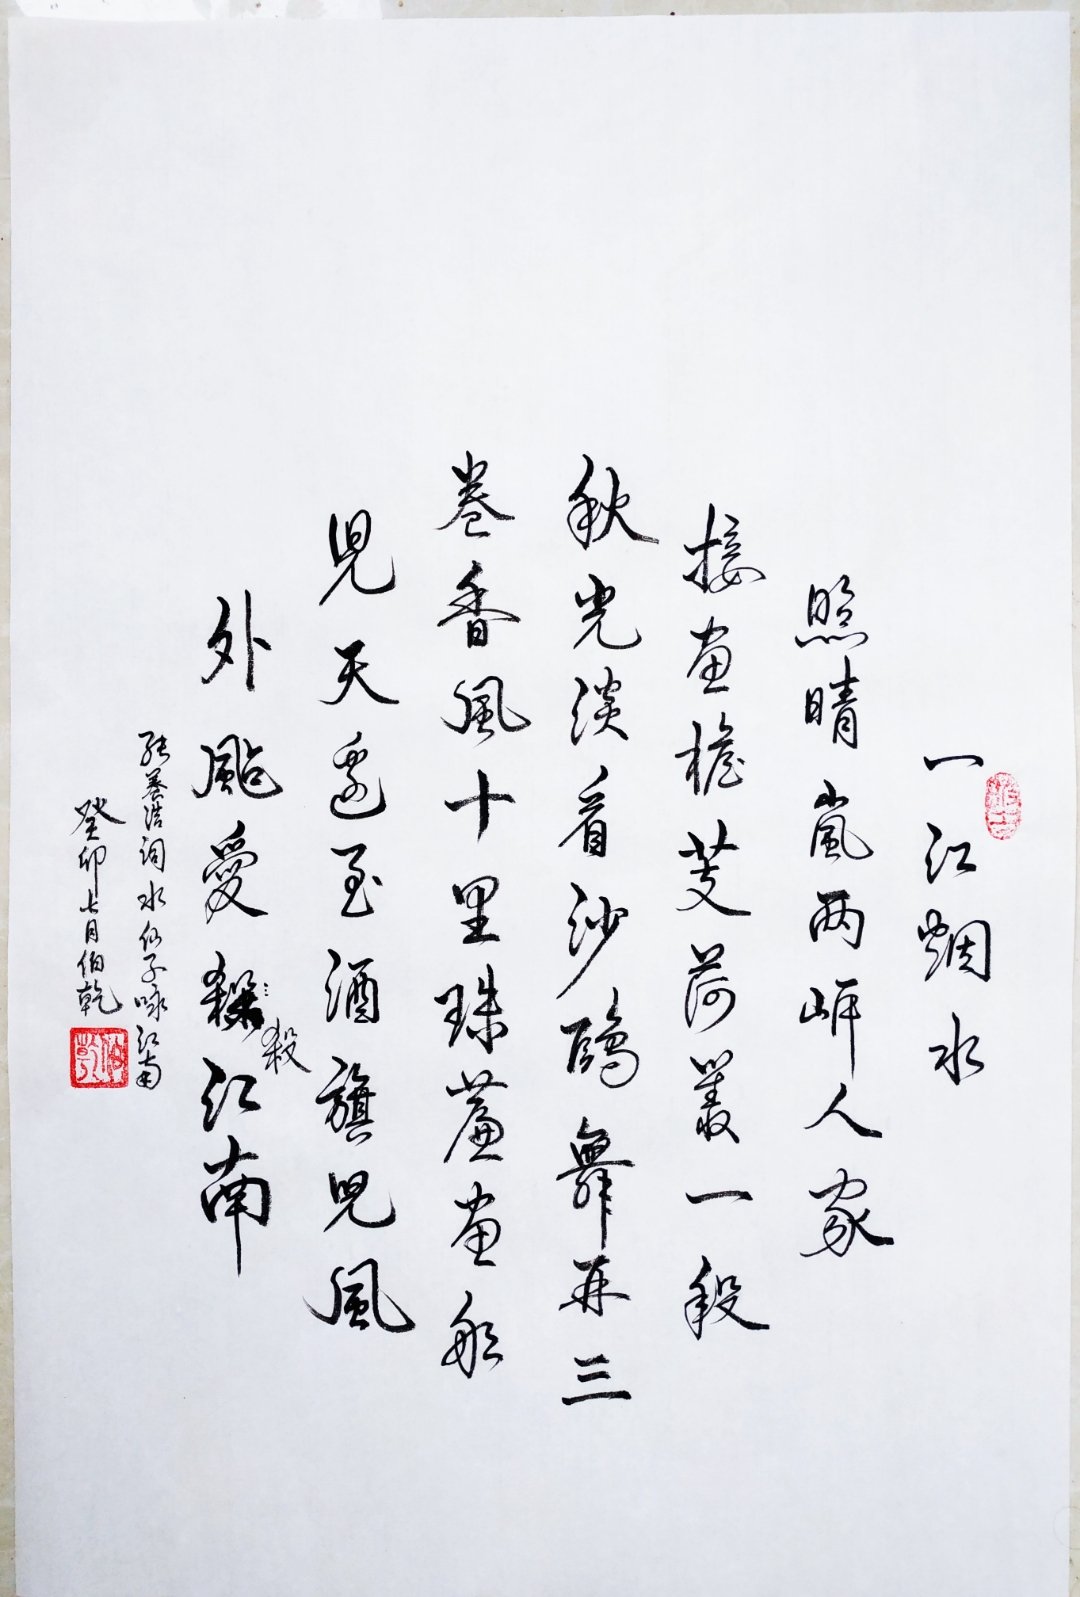 一江烟水
照晴嵐两岸人家
接画檐芰荷叢一段
秋光淡看沙鷗舞再三
卷香風十里珠簾画船
児天邊至酒旗児風
外颭愛殺江南
殺
張养浩詞水仙子咏江南
癸卯七月伯乾
伯乾